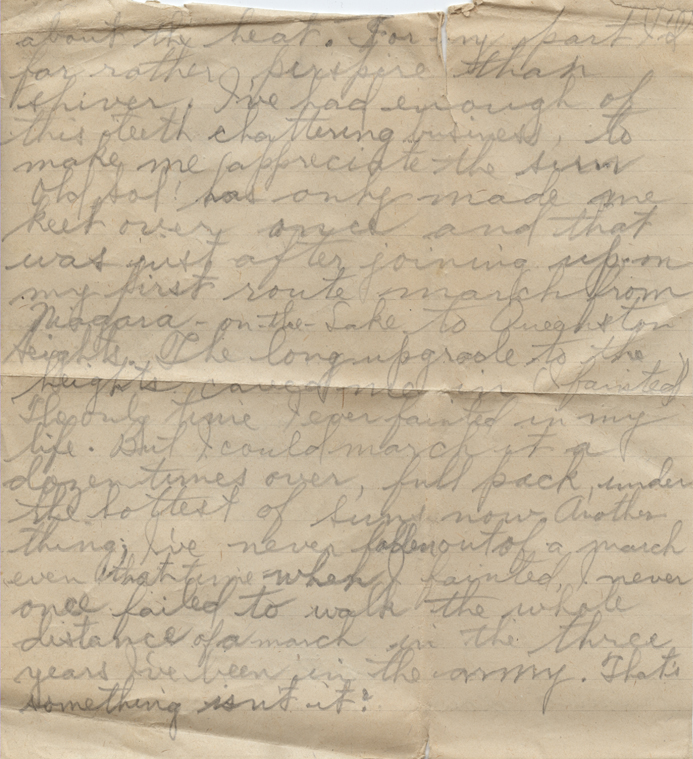 about the heat. For my part I'd
far rather perspire than
shiver. I've had enough of
this teeth chattering business, to
make me appreciate the sun
Old Sol! has only made me
keel over once and that
was just after joining up on
my first route march from
Niagara-on-the-Lake to Queenston
heights. The long upgrade to the
heights caved me in (I fainted)
The only time I ever fainted in my
life. But I could march it a
dozen times over, full pack, under
the hottest of suns now Another
thing; I've never fallen out of a march
even that time when I fainted, I never
once failed to walk the whole
distance of a march in the three
years I've been in the army. That's
something isn't it?